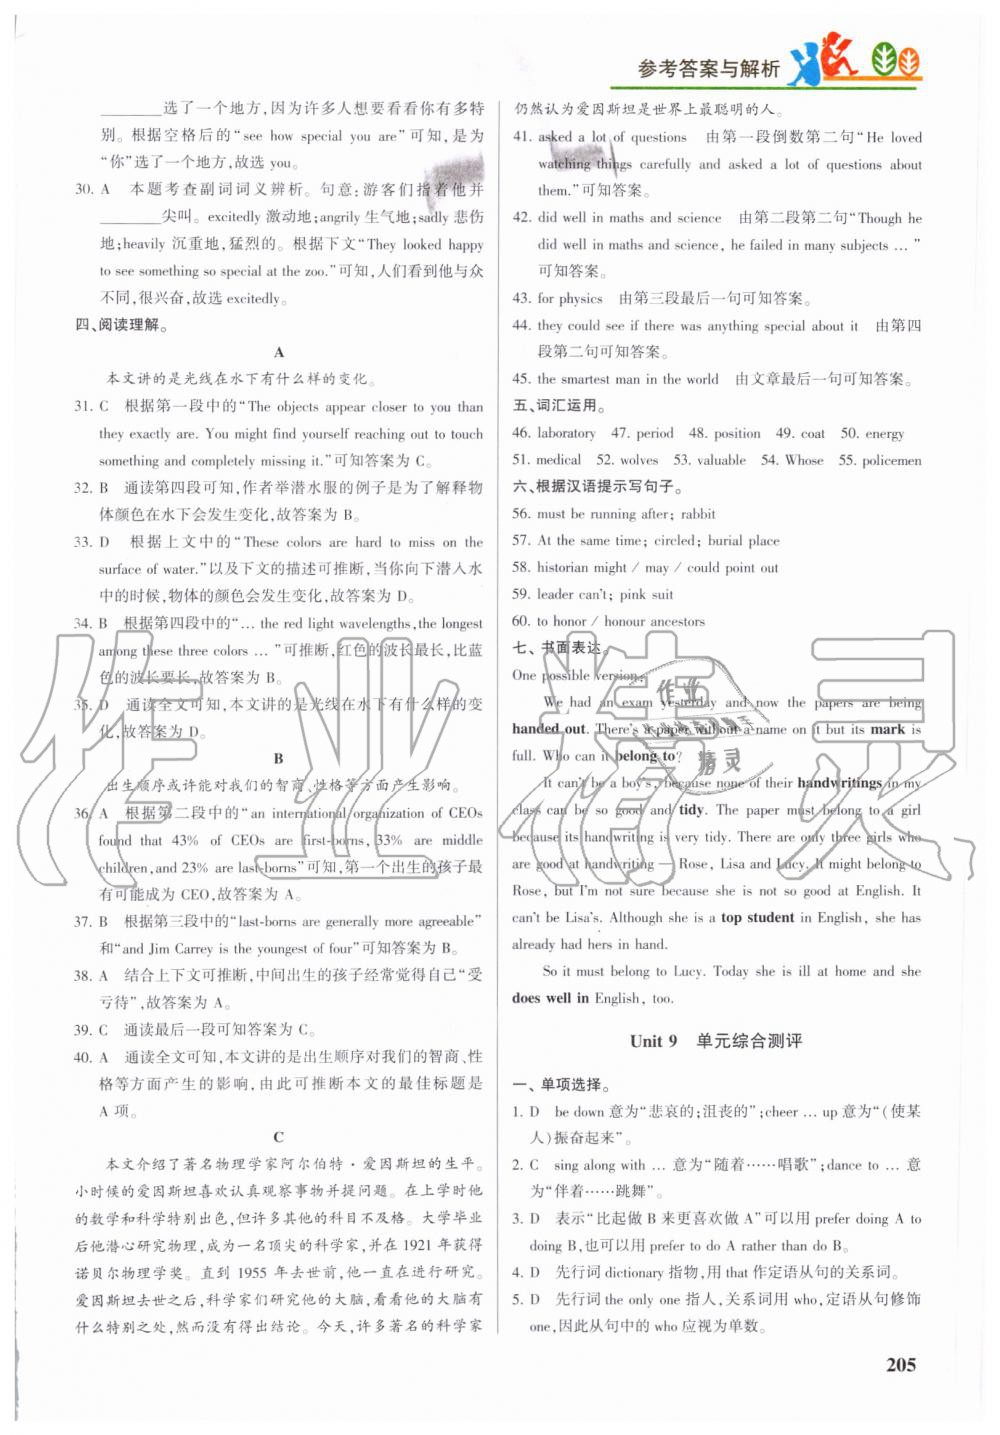 参考答案与解析
________选了一个地方,因为许多人想要看看你有多特
别。根据空格后的“see how special you are”可知,是为
“你”选了一个地方,故选 you。
30. A 本题考查副词词义辨析。句意:游客们指着他并
________尖叫。excitedly 激动地;angrily 生气地;sadly 悲伤
地;heavily 沉重地,猛烈的。根据下文“They looked happy
to see something so special at the zoo.”可知,人们看到他与众
不同,很兴奋,故选 excitedly。
四、阅读理解。
A
本文讲的是光线在水下有什么样的变化。
31. C 根据第一段中的“The objects appear closer to you than
they exactly are. You might find yourself reaching out to touch
something and completely missing it.”可知答案为 C。
32. B 通读第四段可知,作者举潜水服的例子是为了解释物
体颜色在水下会发生变化,故答案为 B。
33. D 根据上文中的“These colors are hard to miss on the
surface of water.”以及下文的描述可推断,当你向下潜入水
中的时候,物体的颜色会发生变化,故答案为 D。
34. B 根据第四段中的“… the red light wavelengths,the longest
among these three colors …”可推断,红色的波长最长,比蓝
色的波长要长,故答案为 B。
35. D 通读全文可知,本文讲的是光线在水下有什么样的变
化,故答案为 D。
B
出生顺序或许能对我们的智商、性格等方面产生影响。
36. A 根据第二段中的“an international organization of CEOs
found that 43% of CEOs are first-borns, 33% are middle
children,and 23% are last-borns”可知,第一个出生的孩子最
有可能成为 CEO,故答案为 A。
37. B 根据第三段中的“last-borns are generally more agreeable”
和“and Jim Carrey is the youngest of four”可知答案为 B。
38. A 结合上下文可推断,中间出生的孩子经常觉得自己“受
亏待”,故答案为 A。
39. C 通读最后一段可知答案为 C。
40. A 通读全文可知,本文讲的是出生顺序对我们的智商、性
格等方面产生的影响,由此可推断本文的最佳标题是
A 项。
C
本文介绍了著名物理学家阿尔伯特·爱因斯坦的生平。
小时候的爱因斯坦喜欢认真观察事物并提问题。在上学时他
的数学和科学特别出色,但许多其他的科目不及格。大学毕业
后他潜心研究物理,成为一名顶尖的科学家,并在 1921 年获得
诺贝尔物理学奖。直到 1955 年去世前,他一直在进行研究。
爱因斯坦去世之后,科学家们研究他的大脑,看看他的大脑有
什么特别之处,然而没有得出结论。今天,许多著名的科学家
仍然认为爱因斯坦是世界上最聪明的人。
41. asked a lot of questions 由第一段倒数第二句“He loved
watching things carefully and asked a lot of questions about
them.”可知答案。
42. did well in maths and science 由第二段第二句“Though he
did well in maths and science, he failed in many subjects …”
可知答案。
43. for physics 由第三段最后一句可知答案。
44. they could see if there was anything special about it 由第四
段第二句可知答案。
45. the smartest man in the world 由文章最后一句可知答案。
五、词汇运用。
46. laboratory 47. period 48. position 49. coat 50. energy
51. medical 52. wolves 53. valuable 54. Whose 55. policemen
六、根据汉语提示写句子。
56. must be running after; rabbit
57. At the same time; circled; burial place
58. historian might / may / could point out
59. leader can't; pink suit
60. to honor / honour ancestors
七、书面表达。
One possible version:
We had an exam yesterday and now the papers are being
handed out. There's a paper without a name on it but its mark is
full. Who can it belong to?
It can't be a boy's, because none of their handwritings in my
class can be so good and tidy. The paper must belong to a girl
because its handwriting is very tidy. There are only three girls who
are good at handwriting — Rose, Lisa and Lucy. It might belong to
Rose, but I'm not sure because she is not so good at English. It
can't be Lisa's. Although she is a top student in English, she has
already had hers in hand.
So it must belong to Lucy. Today she is ill at home and she
does well in English, too.
Unit 9 单元综合测评
一、单项选择。
1. D be down 意为“悲哀的;沮丧的”;cheer … up 意为“(使某
人)振奋起来”。
2. C sing along with … 意为“随着……唱歌”;dance to … 意
为“伴着……跳舞”。
3. D 表示“比起做 B 来更喜欢做 A”可以用 prefer doing A to
doing B,也可以用 prefer to do A rather than do B。
4. D 先行词 dictionary 指物,用 that 作定语从句的关系词。
5. D 先行词 the only one 指人,关系词用 who,定语从句修饰
one,因此从句中的 who 应视为单数。
205
作业精灵
作业
精灵